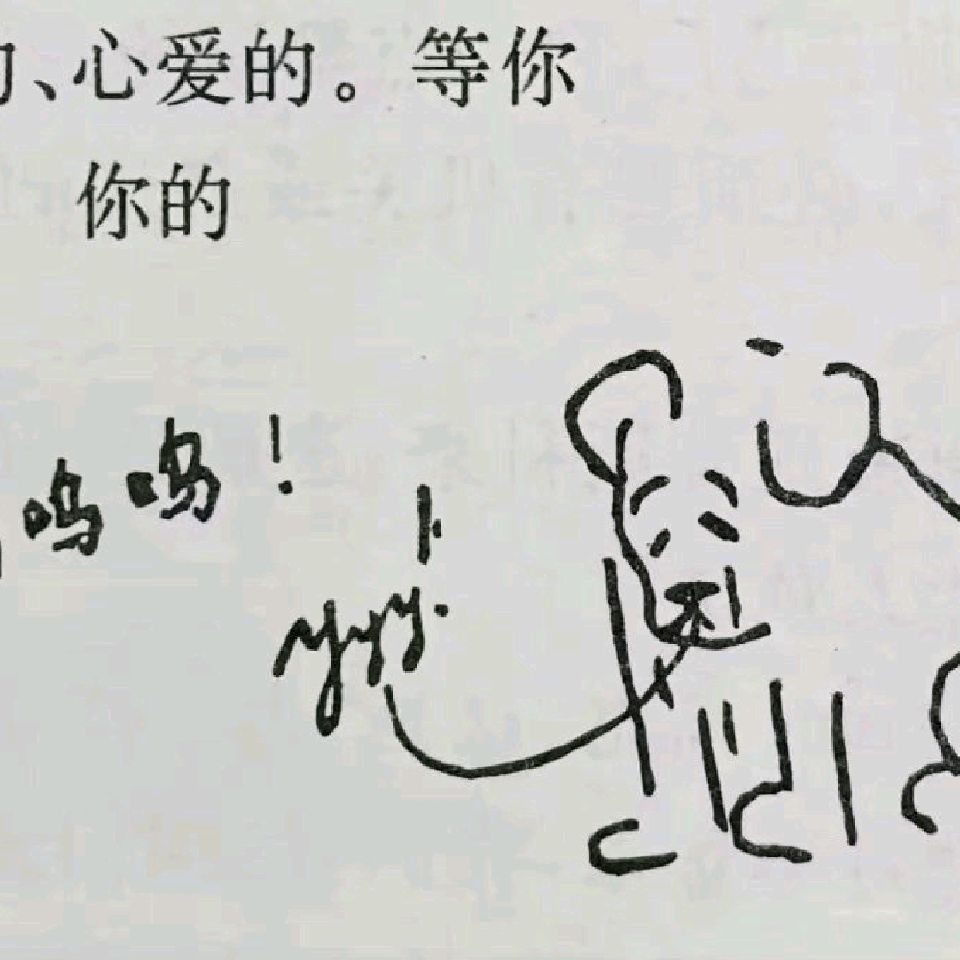 、心爱的。等你
你的
呜呜！
yyy!